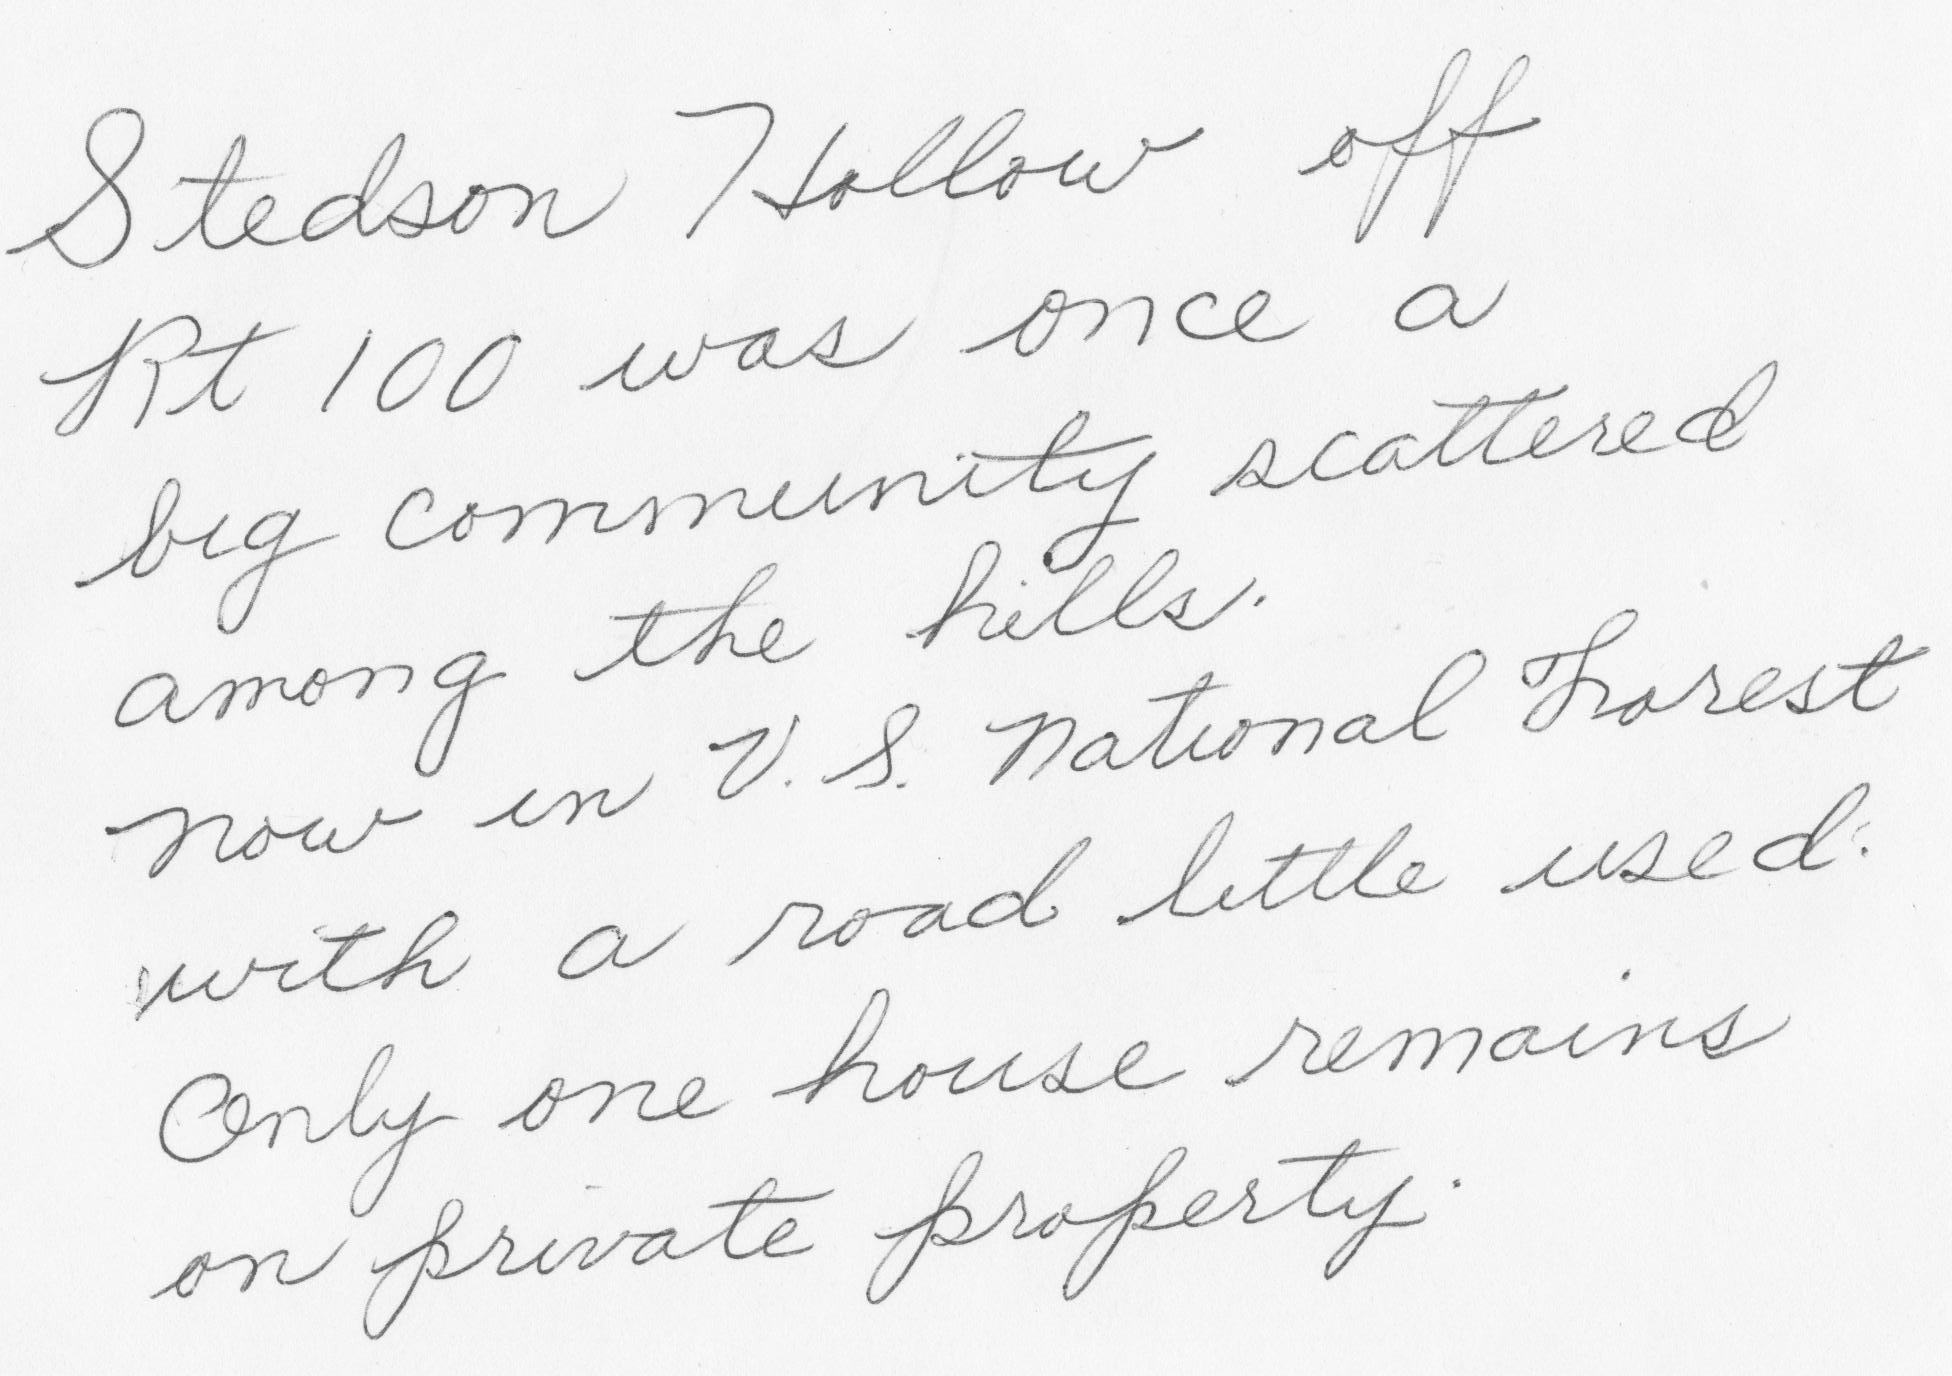 Stedson Hollow off
Rt 100 was once a
big community scattered
among the hills.
Now in U.S. National Forest
with a road little used.
Only one house remains
on private property.